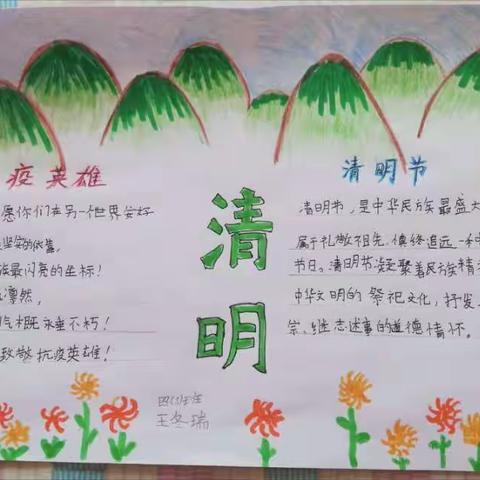 疫英雄
愿你们在另一个世界安好
最闪亮的坐标！
肃然，
气概永垂不朽！
致敬抗疫英雄！
清明
清明节
清明节，是中华民族最盛大
属于礼敬祖先、慎终追远一种
节日。清明节凝聚着民族精
中华文明的祭祀文化，抒发
宗、继志述事的道德情怀。
四(1)班
王冬瑞